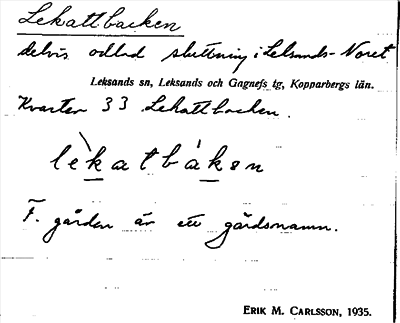 Lekattbacken
delvis odlad sluttning i Leksands-Noret
Leksands sn, Leksands och Gagnefs tg, Kopparbergs län.
Kvarter 33 Lekattbacken.
lèkatbákən
F. gården är ett gårdsnamn.
ERIK M. CARLSSON, 1935.